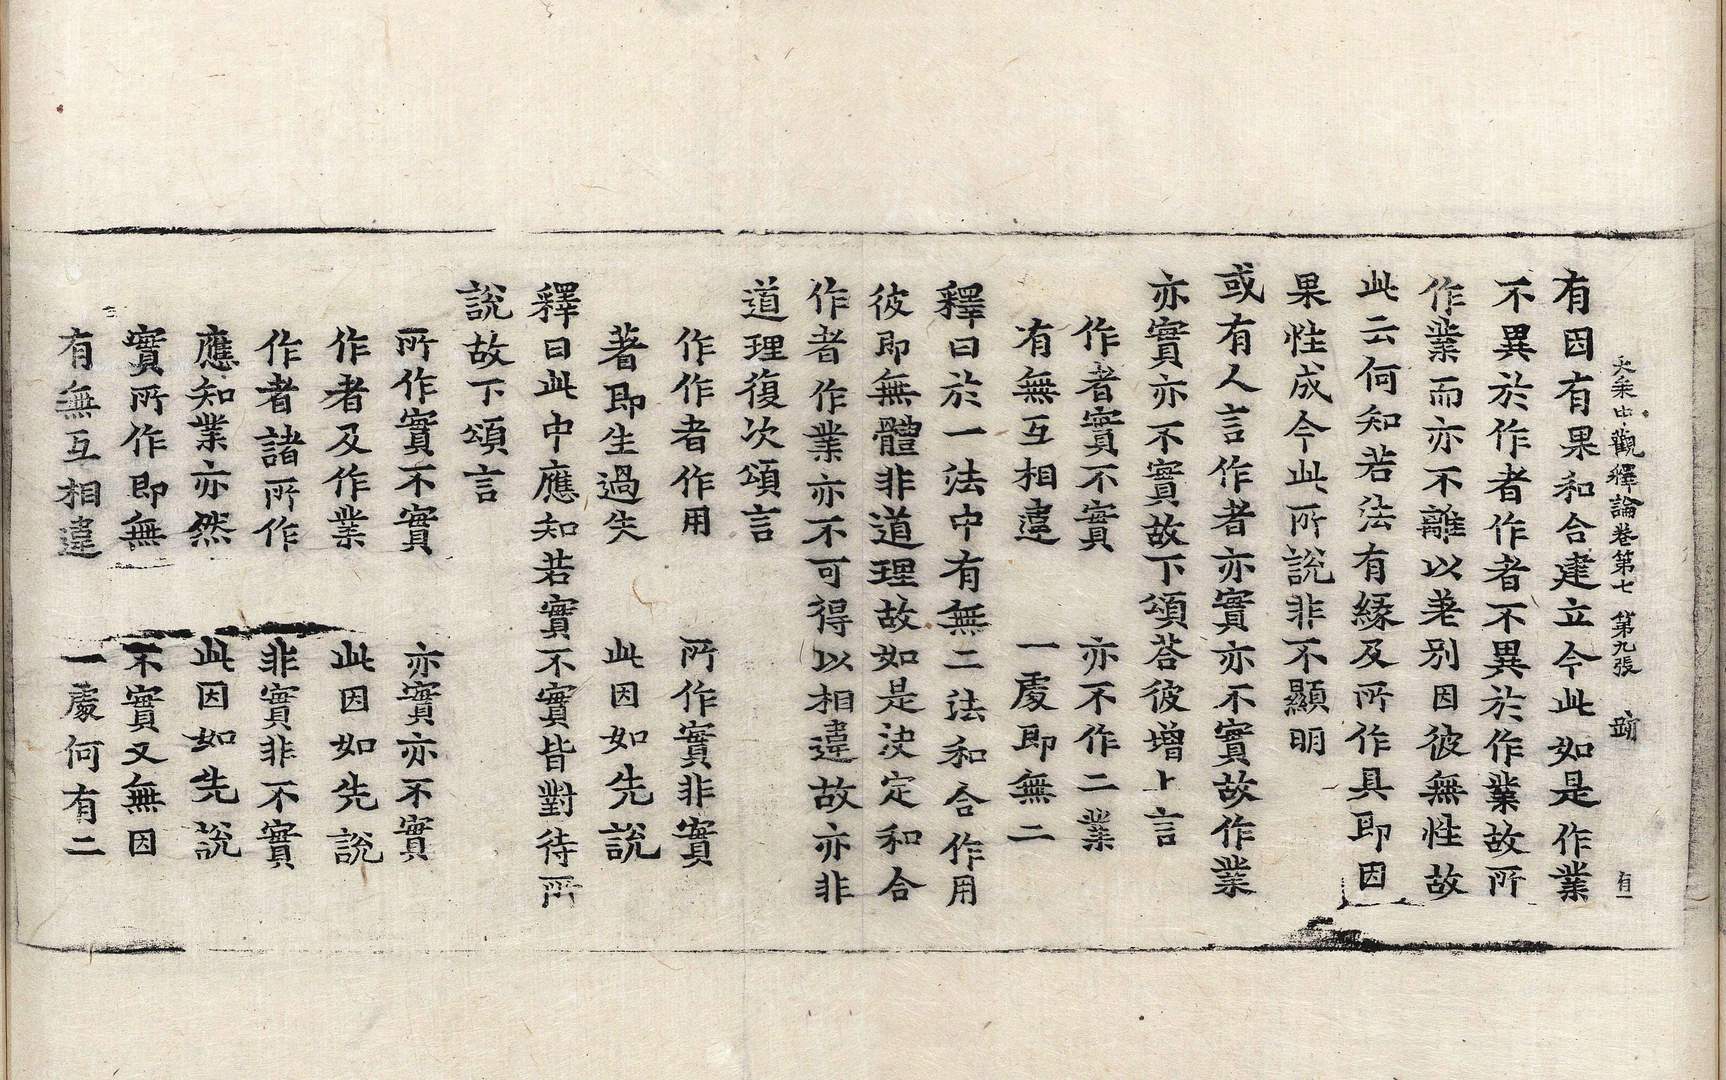 大乘中觀釋論卷第七 第九張 有一
有因有果和合建立今此如是作業
不異於作者作者不異於作業故所
作業而亦不離以差別因彼無性故
此云何知若法有緣及所作具即因
果性成今此所說非不顯明
或有人言作者亦實亦不實故作業
亦實亦不實故下頌荅彼增上言
作者實不實 亦不作二業
有無互相違 一處即無二
釋曰於一法中有無二法和合作用
彼即無體非道理故如是決定和合
作者作業亦不可得以相違故亦非
道理復次頌言
作作者作用 所作實非實
著即生過失 此因如先說
釋曰此中應知若實不實皆對待所
說故下頌言
所作實不實 亦實亦不實
作者及作業 此因如先說
作者諸所作 非實非不實
應知業亦然 此因如先說
實所作即無 不實又無因
有無互相違 一處何有二